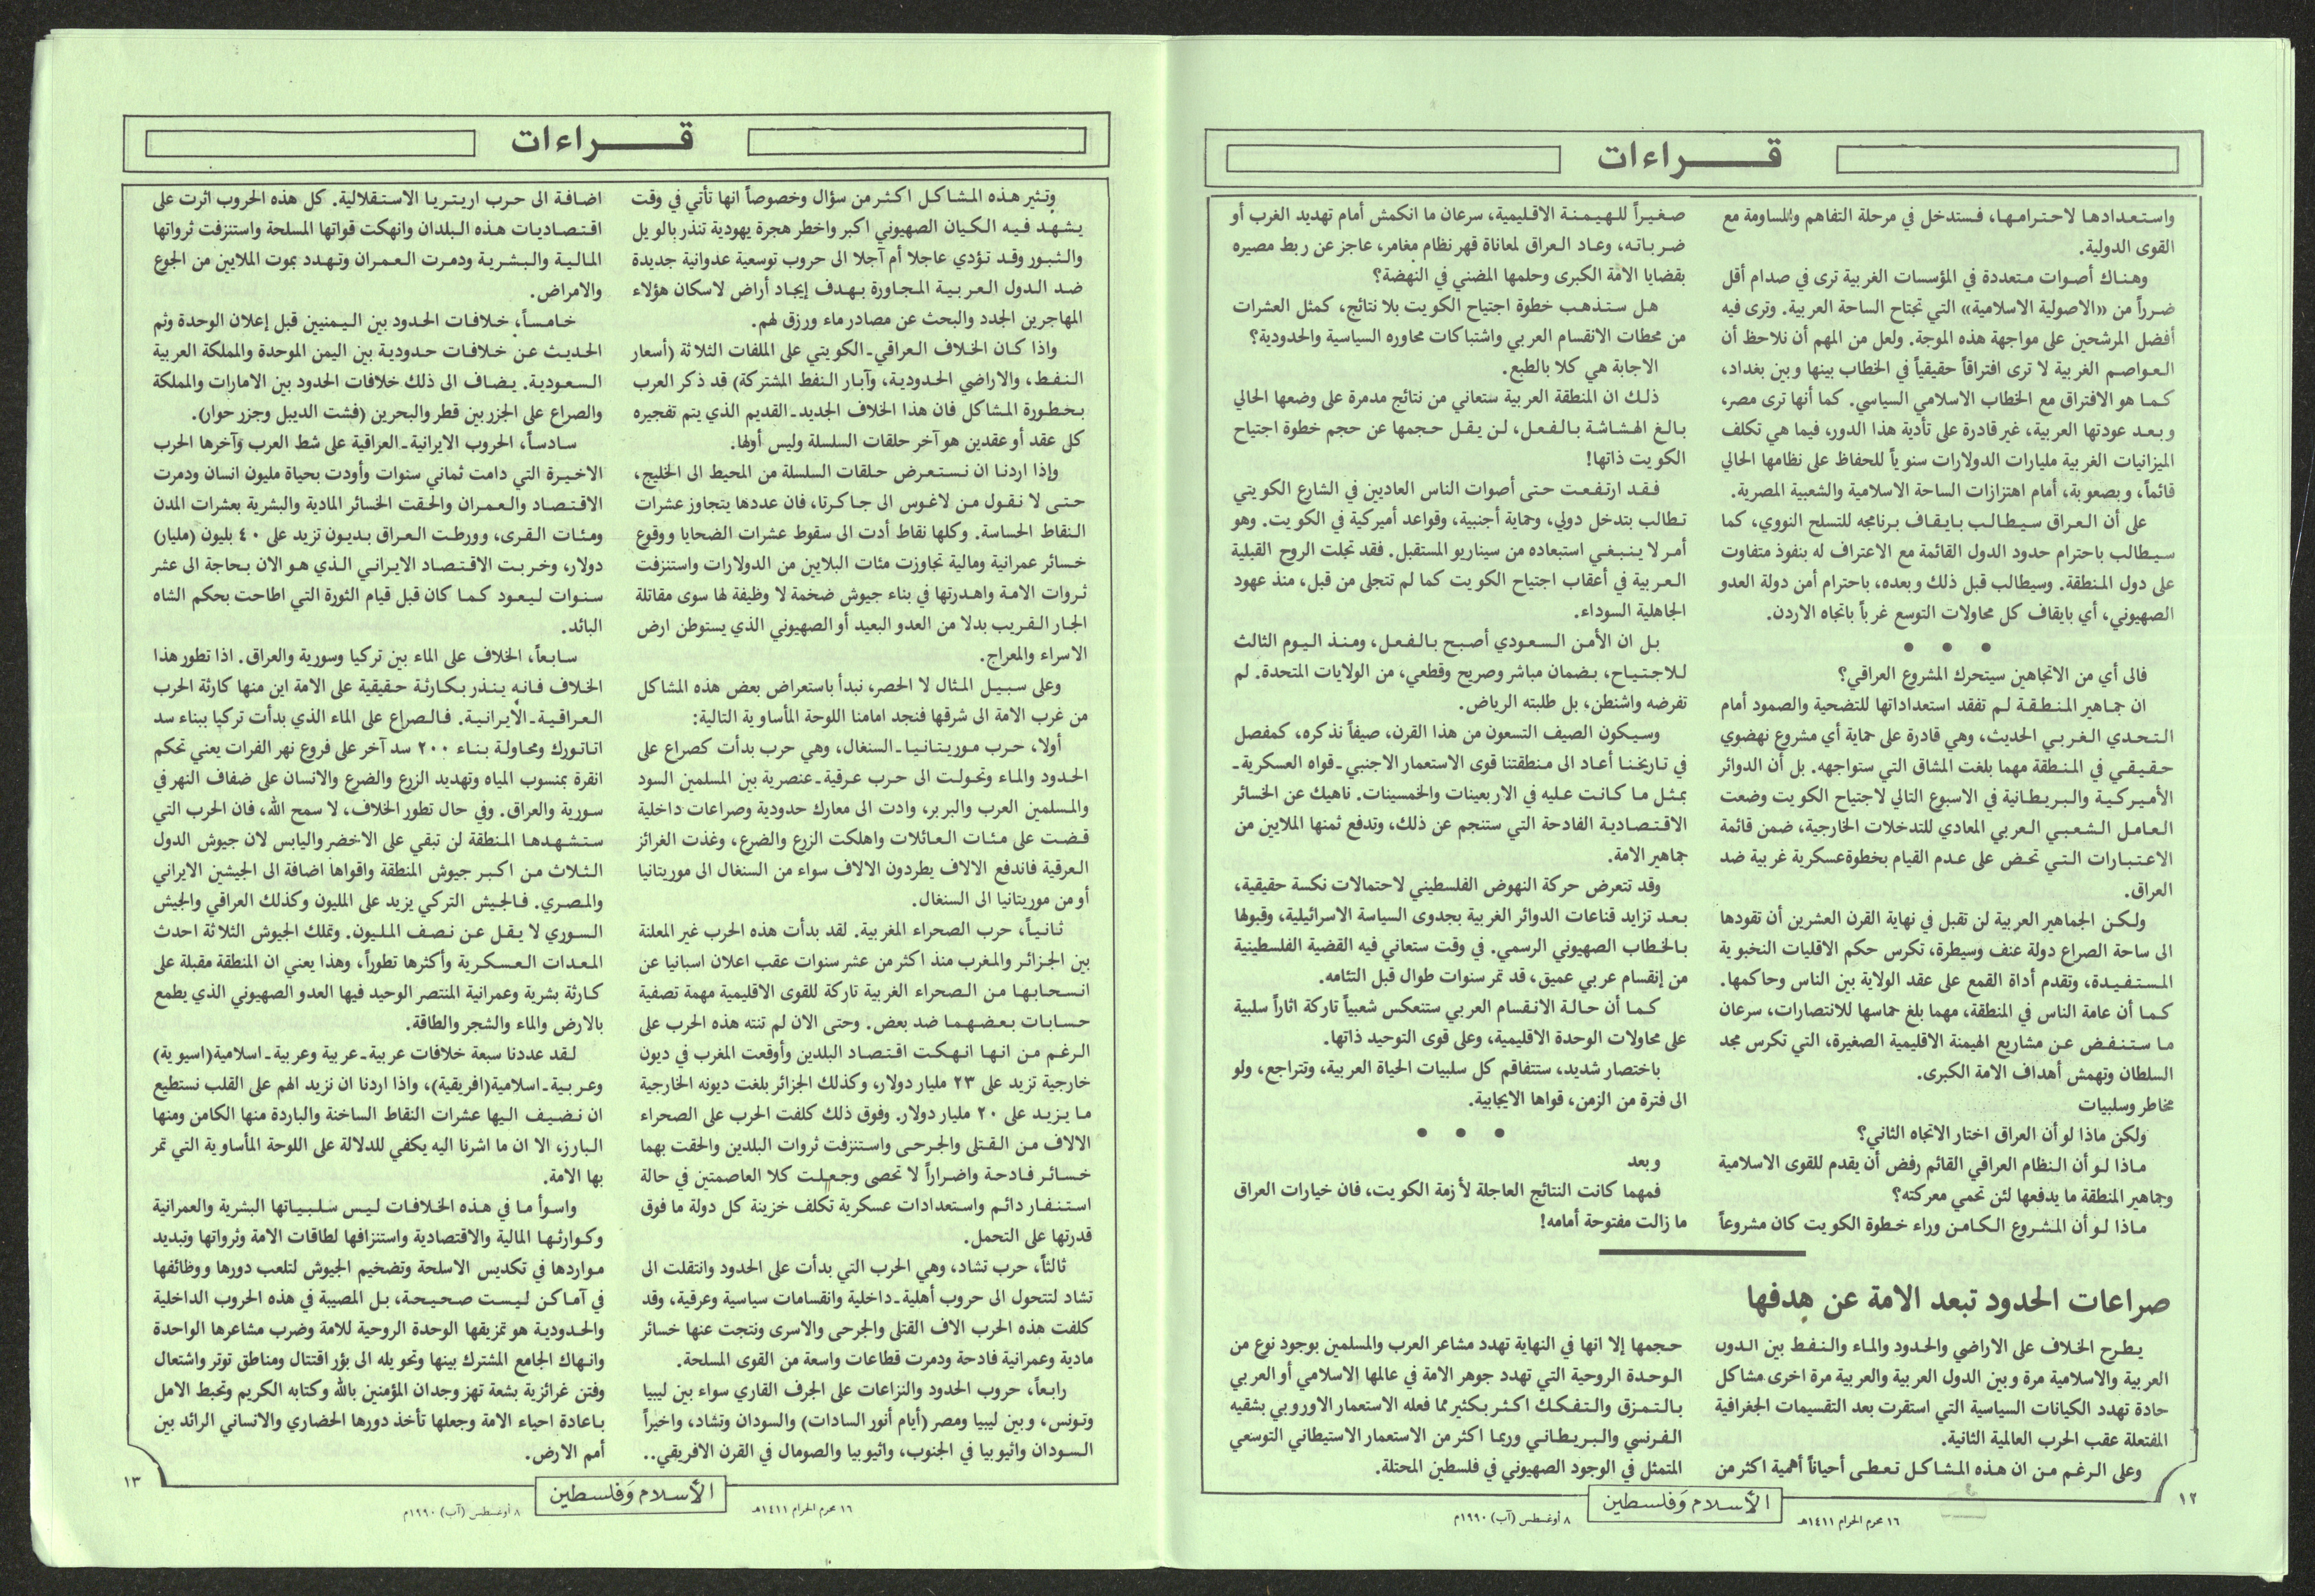 قـــــراءات
واستعدادها لاحترامها، فستدخل في مرحلة التفاهم والمساومة مع
القوى الدولية.
وهناك أصوات متعددة في المؤسسات الغربية ترى في صدام أقل
ضرراً من «الاصولية الاسلامية» التي تجتاح الساحة العربية. وترى فيه
أفضل المرشحين على مواجهة هذه الموجة. ولعل من المهم أن نلاحظ أن
العواصم الغربية لا ترى افتراقاً حقيقياً في الخطاب بينها وبين بغداد،
كما هو الافتراق مع الخطاب الاسلامي السياسي. كما أنها ترى مصر،
وبعد عودتها العربية، غير قادرة على تأدية هذا الدور، فيما هي تكلف
الميزانيات الغربية مليارات الدولارات سنوياً للحفاظ على نظامها الحالي
قائماً، وبصعوبة، أمام اهتزازات الساحة الاسلامية والشعبية المصرية.
على أن العراق سيطالب بايقاف برنامجه للتسلح النووي، كما
سيطالب باحترام حدود الدول القائمة مع الاعتراف له بنفوذ متفاوت
على دول المنطقة. وسيطالب قبل ذلك وبعده، باحترام أمن دولة العدو
الصهيوني، أي بايقاف كل محاولات التوسع غرباً باتجاه الاردن.
• • •
فالى أي من الاتجاهين سيتحرك المشروع العراقي؟
ان جماهير المنطقة لم تفقد استعداداتها للتضحية والصمود أمام
التحدي الغربي الحديث، وهي قادرة على حماية أي مشروع نهضوي
حقيقي في المنطقة مهما بلغت المشاق التي ستواجهه. بل أن الدوائر
الأميركية والبريطانية في الاسبوع التالي لاجتياح الكويت وضعت
العامل الشعبي العربي المعادي للتدخلات الخارجية، ضمن قائمة
الاعتبارات التي تحض على عدم القيام بخطوة عسكرية غربية ضد
العراق.
ولكن الجماهير العربية لن تقبل في نهاية القرن العشرين أن تقودها
الى ساحة الصراع دولة عنف وسيطرة، تكرس حكم الاقليات النخبوية
المستفيدة، وتقدم أداة القمع على عقد الولاية بين الناس وحاكمها.
كما أن عامة الناس في المنطقة، مهما بلغ حماسها للانتصارات، سرعان
ما ستنفض عن مشاريع الهيمنة الاقليمية الصغيرة، التي تكرس مجد
السلطان وتهمش أهداف الامة الكبرى.
مخاطر وسلبيات
ولكن ماذا لو أن العراق اختار الاتجاه الثاني؟
ماذا لو أن النظام العراقي القائم رفض أن يقدم للقوى الاسلامية
وجماهير المنطقة ما يدفعها لئن تحمي معركته؟
ماذا لو أن المشروع الكامن وراء خطوة الكويت كان مشروعاً
صغيراً للهيمنة الاقليمية، سرعان ما انكمش أمام تهديد الغرب أو
ضرباته، وعاد العراق لمعاناة قهر نظام مغامر، عاجز عن ربط مصيره
بقضايا الامة الكبرى وحلمها المضني في النهضة؟
هل ستذهب خطوة اجتياح الكويت بلا نتائج، كمثل العشرات
من محطات الانقسام العربي واشتباكات محاوره السياسية والحدودية؟
الاجابة هي كلا بالطبع.
ذلك ان المنطقة العربية ستعاني من نتائج مدمرة على وضعها الحالي
بالغ الهشاشة بالفعل، لن يقل حجمها عن حجم خطوة اجتياح
الكويت ذاتها!
فقد ارتفعت حتى أصوات الناس العاديين في الشارع الكويتي
تطالب بتدخل دولي، وحماية أجنبية، وقواعد أميركية في الكويت. وهو
أمر لا ينبغي استبعاده من سيناريو المستقبل. فقد تجلت الروح القبلية
العربية في أعقاب اجتياح الكويت كما لم تتجلى من قبل، منذ عهود
الجاهلية السوداء.
بل ان الأمن السعودي أصبح بالفعل، ومنذ اليوم الثالث
للاجتياح، بضمان مباشر وصريح وقطعي، من الولايات المتحدة. لم
تفرضه واشنطن، بل طلبته الرياض.
وسيكون الصيف التسعون من هذا القرن، صيفاً نذكره، كمفصل
في تاريخنا أعاد الى منطقتنا قوى الاستعمار الاجنبي ـ قواه العسكرية ـ
بمثل ما كانت عليه في الاربعينات والخمسينات. ناهيك عن الخسائر
الاقتصادية الفادحة التي ستنجم عن ذلك، وتدفع ثمنها الملايين من
جماهير الامة.
وقد تتعرض حركة النهوض الفلسطيني لاحتمالات نكسة حقيقية،
بعد تزايد قناعات الدوائر الغربية بجدوى السياسة الاسرائيلية، وقبولها
بالخطاب الصهيوني الرسمي. في وقت ستعاني فيه القضية الفلسطينية
من إنقسام عربي عميق، قد تمر سنوات طوال قبل التئامه.
كما أن حالة الانقسام العربي ستنعكس شعبياً تاركة اثاراً سلبية
على محاولات الوحدة الاقليمية، وعلى قوى التوحيد ذاتها.
باختصار شديد، ستتفاقم كل سلبيات الحياة العربية، وتتراجع، ولو
الى فترة من الزمن، قواها الايجابية.
• • •
وبعد
فمهما كانت النتائج العاجلة لأزمة الكويت، فان خيارات العراق
ما زالت مفتوحة أمامه!
صراعات الحدود تبعد الامة عن هدفها
يطرح الخلاف على الاراضي والحدود والماء والنفط بين الدون
العربية والاسلامية مرة وبين الدول العربية والعربية مرة اخرى مشاكل
حادة تهدد الكيانات السياسية التي استقرت بعد التقسيمات الجغرافية
المفتعلة عقب الحرب العالمية الثانية.
وعلى الرغم من ان هذه المشاكل تعطى أحياناً أهمية اكثر من
حجمها إلا انها في النهاية تهدد مشاعر العرب والمسلمين بوجود نوع من
الوحدة الروحية التي تهدد جوهر الامة في عالمها الاسلامي أو العربي
بالتمزق والتفكك اكثر بكثير مما فعله الاستعمار الاوروبي بشقيه
الفرنسي والبريطاني وربما اكثر من الاستعمار الاستيطاني التوسعي
المتمثل في الوجود الصهيوني في فلسطين المحتلة.
١٢
١٦ محرم الحرام ١٤١١هـ
الأسلام وَفلسطين
٨ أوغسطس (آب) ١٩٩٠م
قـــــراءات
وتثير هذه المشاكل اكثر من سؤال وخصوصاً انها تأتي في وقت
يشهد فيه الكيان الصهيوني اكبر واخطر هجرة يهودية تنذر بالويل
والثبور وقد تؤدي عاجلا أم آجلا الى حروب توسعية عدوانية جديدة
ضد الدول العربية المجاورة بهدف إيجاد أراض لاسكان هؤلاء
المهاجرين الجدد والبحث عن مصادر ماء ورزق لهم.
واذا كان الخلاف العراقي ـ الكويتي على الملفات الثلاثة (أسعار
النفط، والاراضي الحدودية، وآبار النفط المشتركة) قد ذكر العرب
بخطورة المشاكل فان هذا الخلاف الجديد ـ القديم الذي يتم تفجيره
كل عقد أو عقدين هو آخر حلقات السلسلة وليس أولها.
وإذا اردنا ان نستعرض حلقات السلسلة من المحيط الى الخليج،
حتى لا نقول من لاغوس الى جاكرتا، فان عددها يتجاوز عشرات
النقاط الحساسة. وكلها نقاط أدت الى سقوط عشرات الضحايا ووقوع
خسائر عمرانية ومالية تجاوزت مئات البلايين من الدولارات واستنزفت
ثروات الامة واهدرتها في بناء جيوش ضخمة لا وظيفة لها سوى مقاتلة
الجار القريب بدلا من العدو البعيد أو الصهيوني الذي يستوطن ارض
الاسراء والمعراج.
وعلى سبيل المثال لا الحصر، نبدأ باستعراض بعض هذه المشاكل
من غرب الامة الى شرقها فنجد امامنا اللوحة المأساوية التالية:
أولا، حرب موريتانيا ـ السنغال، وهي حرب بدأت كصراع على
الحدود والماء وتحولت الى حرب عرقية ـ عنصرية بين المسلمين السود
والمسلمين العرب والبربر، وادت الى معارك حدودية وصراعات داخلية
قضت على مئات العائلات واهلكت الزرع والضرع، وغذت الغرائز
العرقية فاندفع الالاف يطردون الالاف سواء من السنغال الى موريتانيا
أو من موريتانيا الى السنغال.
ثانياً، حرب الصحراء المغربية. لقد بدأت هذه الحرب غير المعلنة
بين الجزائر والمغرب منذ اكثر من عشر سنوات عقب اعلان اسبانيا عن
انسحابها من الصحراء الغربية تاركة للقوى الاقليمية مهمة تصفية
حسابات بعضهما ضد بعض. وحتى الان لم تنته هذه الحرب على
الرغم من انها انهكت اقتصاد البلدين وأوقعت المغرب في ديون
خارجية تزيد على ٢٣ مليار دولار، وكذلك الجزائر بلغت ديونه الخارجية
ما يزيد على ٢٠ مليار دولار. وفوق ذلك كلفت الحرب على الصحراء
الالاف من القتلى والجرحى واستنزفت ثروات البلدين والحقت بهما
خسائر فادحة واضراراً لا تحصى وجعلت كلا العاصمتين في حالة
استنفار دائم واستعدادات عسكرية تكلف خزينة كل دولة ما فوق
قدرتها على التحمل.
ثالثاً، حرب تشاد، وهي الحرب التي بدأت على الحدود وانتقلت الى
تشاد لتتحول الى حروب أهلية ـ داخلية وانقسامات سياسية وعرقية، وقد
كلفت هذه الحرب الاف القتلى والجرحى والاسرى ونتجت عنها خسائر
مادية وعمرانية فادحة ودمرت قطاعات واسعة من القوى المسلحة.
رابعاً، حروب الحدود والنزاعات على الجرف القاري سواء بين ليبيا
وتونس، وبين ليبيا ومصر (أيام أنور السادات) والسودان وتشاد، واخيراً
السودان واثيوبيا في الجنوب، واثيوبيا والصومال في القرن الافريقي..
اضافة الى حرب اريتريا الاستقلالية. كل هذه الحروب اثرت على
اقتصاديات هذه البلدان وانهكت قواتها المسلحة واستنزفت ثرواتها
المالية والبشرية ودمرت العمران وتهدد بموت الملايين من الجوع
والامراض.
خامساً، خلافات الحدود بين اليمنيين قبل إعلان الوحدة وثم
الحديث عن خلافات حدودية بين اليمن الموحدة والمملكة العربية
السعودية. يضاف الى ذلك خلافات الحدود بين الامارات والمملكة
والصراع على الجزر بين قطر والبحرين (فشت الديبل وجزر حوار).
سادساً، الحروب الايرانية ـ العراقية على شط العرب وآخرها الحرب
الاخيرة التي دامت ثماني سنوات وأودت بحياة مليون انسان ودمرت
الاقتصاد والعمران والحقت الخسائر المادية والبشرية بعشرات المدن
ومئات القرى، وورطت العراق بديون تزيد على ٤٠ بليون (مليار)
دولار، وخربت الاقتصاد الايراني الذي هو الان بحاجة الى عشر
سنوات ليعود كما كان قبل قيام الثورة التي اطاحت بحكم الشاه
البائد.
سابعاً، الخلاف على الماء بين تركيا وسورية والعراق. اذا تطور هذا
الخلاف فانه ينذر بكارثة حقيقية على الامة اين منها كارثة الحرب
العراقية ـ الايرانية. فالصراع على الماء الذي بدأت تركيا ببناء سد
اتاتورك ومحاولة بناء ٢٠٠ سد آخر على فروع نهر الفرات يعني تحكم
انقرة بمنسوب المياه وتهديد الزرع والضرع والانسان على ضفاف النهر في
سورية والعراق. وفي حال تطور الخلاف، لا سمح الله، فان الحرب التي
ستشهدها المنطقة لن تبقي على الاخضر واليابس لان جيوش الدول
الثلاث من اكبر جيوش المنطقة واقواها اضافة الى الجيشين الايراني
والمصري. فالجيش التركي يزيد على المليون وكذلك العراقي والجيش
السوري لا يقل عن نصف المليون. وتملك الجيوش الثلاثة احدث
المعدات العسكرية وأكثرها تطوراً، وهذا يعني ان المنطقة مقبلة على
كارثة بشرية وعمرانية المنتصر الوحيد فيها العدو الصهيوني الذي يطمع
بالارض والماء والشجر والطاقة.
لقد عددنا سبعة خلافات عربية ـ عربية وعربية ـ اسلامية (اسيوية)
وعربية ـ اسلامية (افريقية)، واذا اردنا ان نزيد الهم على القلب نستطيع
ان نضيف اليها عشرات النقاط الساخنة والباردة منها الكامن ومنها
البارز، الا ان ما اشرنا اليه يكفي للدلالة على اللوحة المأساوية التي تمر
بها الامة.
واسوأ ما في هذه الخلافات ليس سلبياتها البشرية والعمرانية
وكوارثها المالية والاقتصادية واستنزافها لطاقات الامة وثرواتها وتبديد
مواردها في تكديس الاسلحة وتضخيم الجيوش لتلعب دورها ووظائفها
في آماكن ليست صحيحة، بل المصيبة في هذه الحروب الداخلية
والحدودية هو تمزيقها الوحدة الروحية للامة وضرب مشاعرها الواحدة
وانهاك الجامع المشترك بينها وتحويله الى بؤر اقتتال ومناطق توتر واشتعال
وفتن غرائزية بشعة تهز وجدان المؤمنين بالله وكتابه الكريم وتحبط الامل
باعادة احياء الامة وجعلها تأخذ دورها الحضاري والانساني الرائد بين
أمم الارض.
١٦ محرم الحرام ١٤١١هـ
الأسلام وَفلسطين
٨ أوغسطس (آب) ١٩٩٠م
١٣